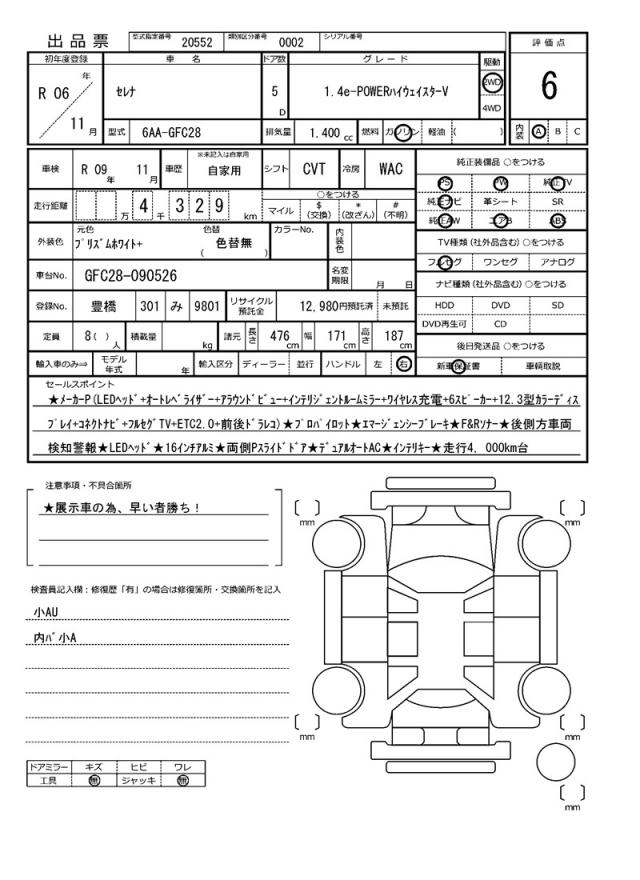 出品票
型式指定番号 20552 類別区分番号 0002 シリアル番号
初年度登録 車名 ドア数 グレード 駆動 評価点
R 06 年 11 月 セレナ 5 D 1.4e-POWERハイウェイスターV 2WD 4WD 6
型式 6AA-GFC28 排気量 1,400 cc 燃料 ガソリン 軽油 ( ) 内装 A B C
車検 R 09 年 11 月 車歴 ※未記入は自家用 自家用 シフト CVT 冷房 WAC
純正装備品 ○をつける
PS PW 純正TV
純正ナビ 革シート SR
純正AW エアB ABS
走行距離 万 4 千 3 2 9 km
○をつける
マイル $(交換) *(改ざん) #(不明)
外装色 元色 プリズムホワイト+ 色替 ( 色替無 ) カラーNo. 内装色
TV種類(社外品含む)○をつける
フルセグ ワンセグ アナログ
車台No. GFC28-090526 名変期限 月 日
ナビ種類(社外品含む)○をつける
HDD DVD SD
DVD再生可 CD
登録No. 豊橋 301 み 9801 リサイクル預託金 12,980円預託済 未預託
定員 8( ) 人 積載量 kg 諸元 長さ 476 cm 幅 171 cm 高さ 187 cm
後日発送品 ○をつける
新車保証書 車輌取説
輸入車のみ⇒ モデル年式 年 輸入区分 ディーラー 並行 ハンドル 左 右
セールスポイント
★メーカーP(LEDヘッド+オートレベライザー+アラウンドビュー+インテリジェントルームミラー+ワイヤレス充電+6スピーカー+12.3型カラーディス
プレイ+コネクトナビ+フルセグTV+ETC2.0+前後ドラレコ)★プロパイロット★エマージェンシーブレーキ★F&Rソナー★後側方車両
検知警報★LEDヘッド★16インチアルミ★両側Pスライドドア★デュアルオートAC★インテリキー★走行4,000km台
注意事項・不具合箇所
★展示車の為、早い者勝ち!
検査員記入欄:修復歴「有」の場合は修復箇所・交換箇所を記入
小AU
内バ小A
ドアミラー キズ ヒビ ワレ
工具 無 ジャッキ 無
mm
mm
mm
mm
mm